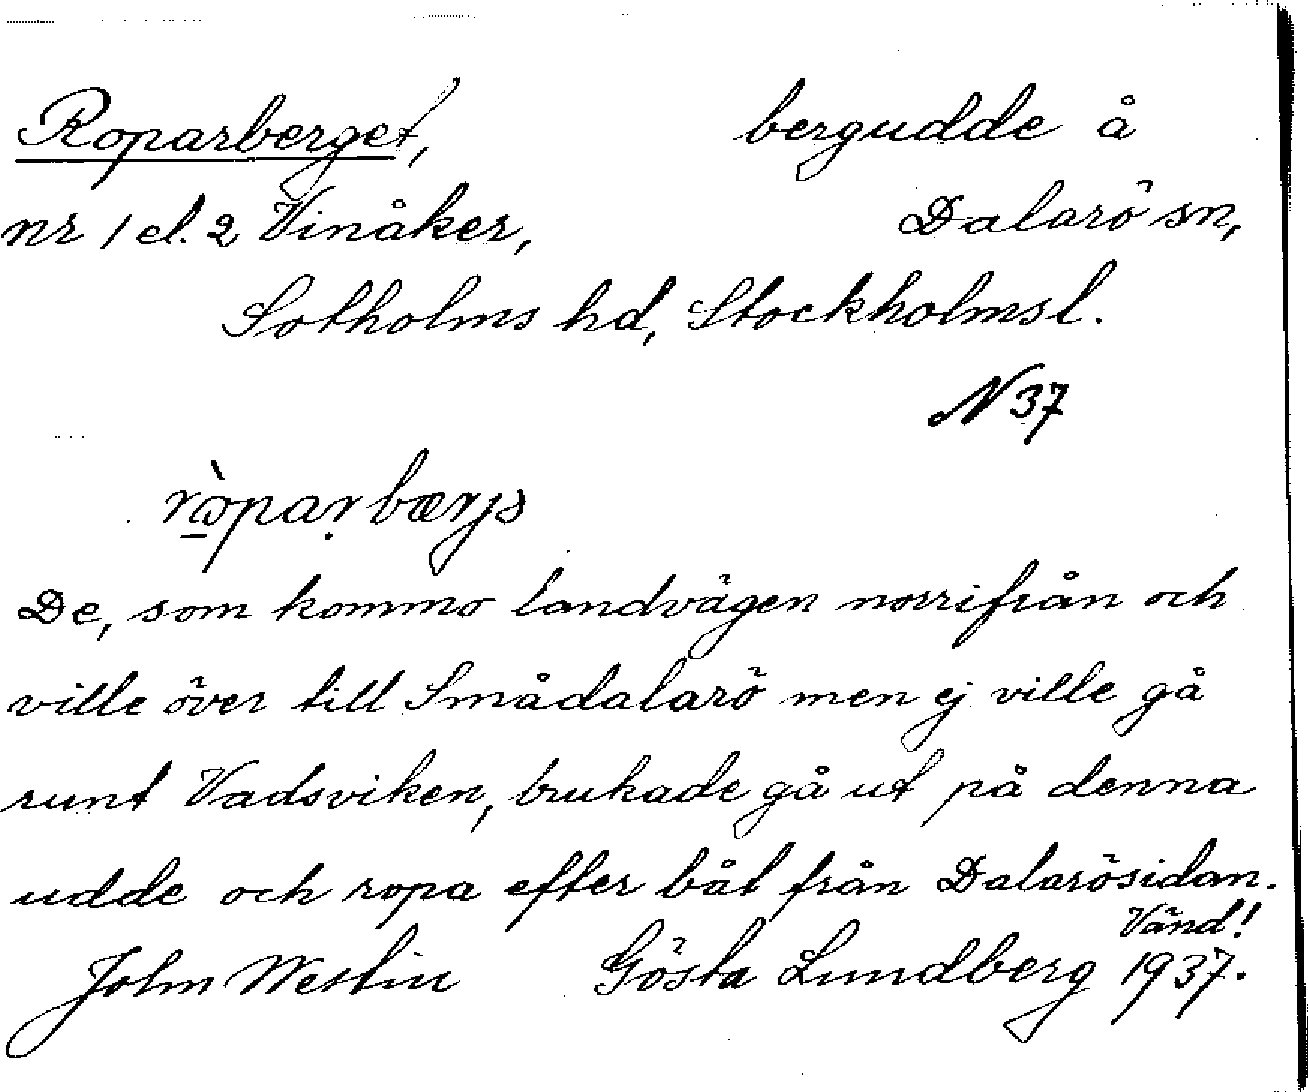 Roparberget, bergudde å
nr 1 el. 2 Vinåker, Dalarö sn,
Sotholms hd, Stockholms l.
N 37
De, som kommo landvägen norrifrån och
ville över till Smådalarö men ej ville gå
runt Vadsviken, brukade gå ut på denna
udde och ropa efter båt från Dalarösidan.
Vänd!
John Westin Gösta Lundberg 1937.